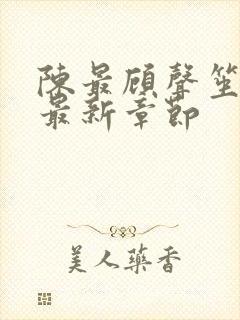 陳最顧聲笙
最新章節
美人藥香